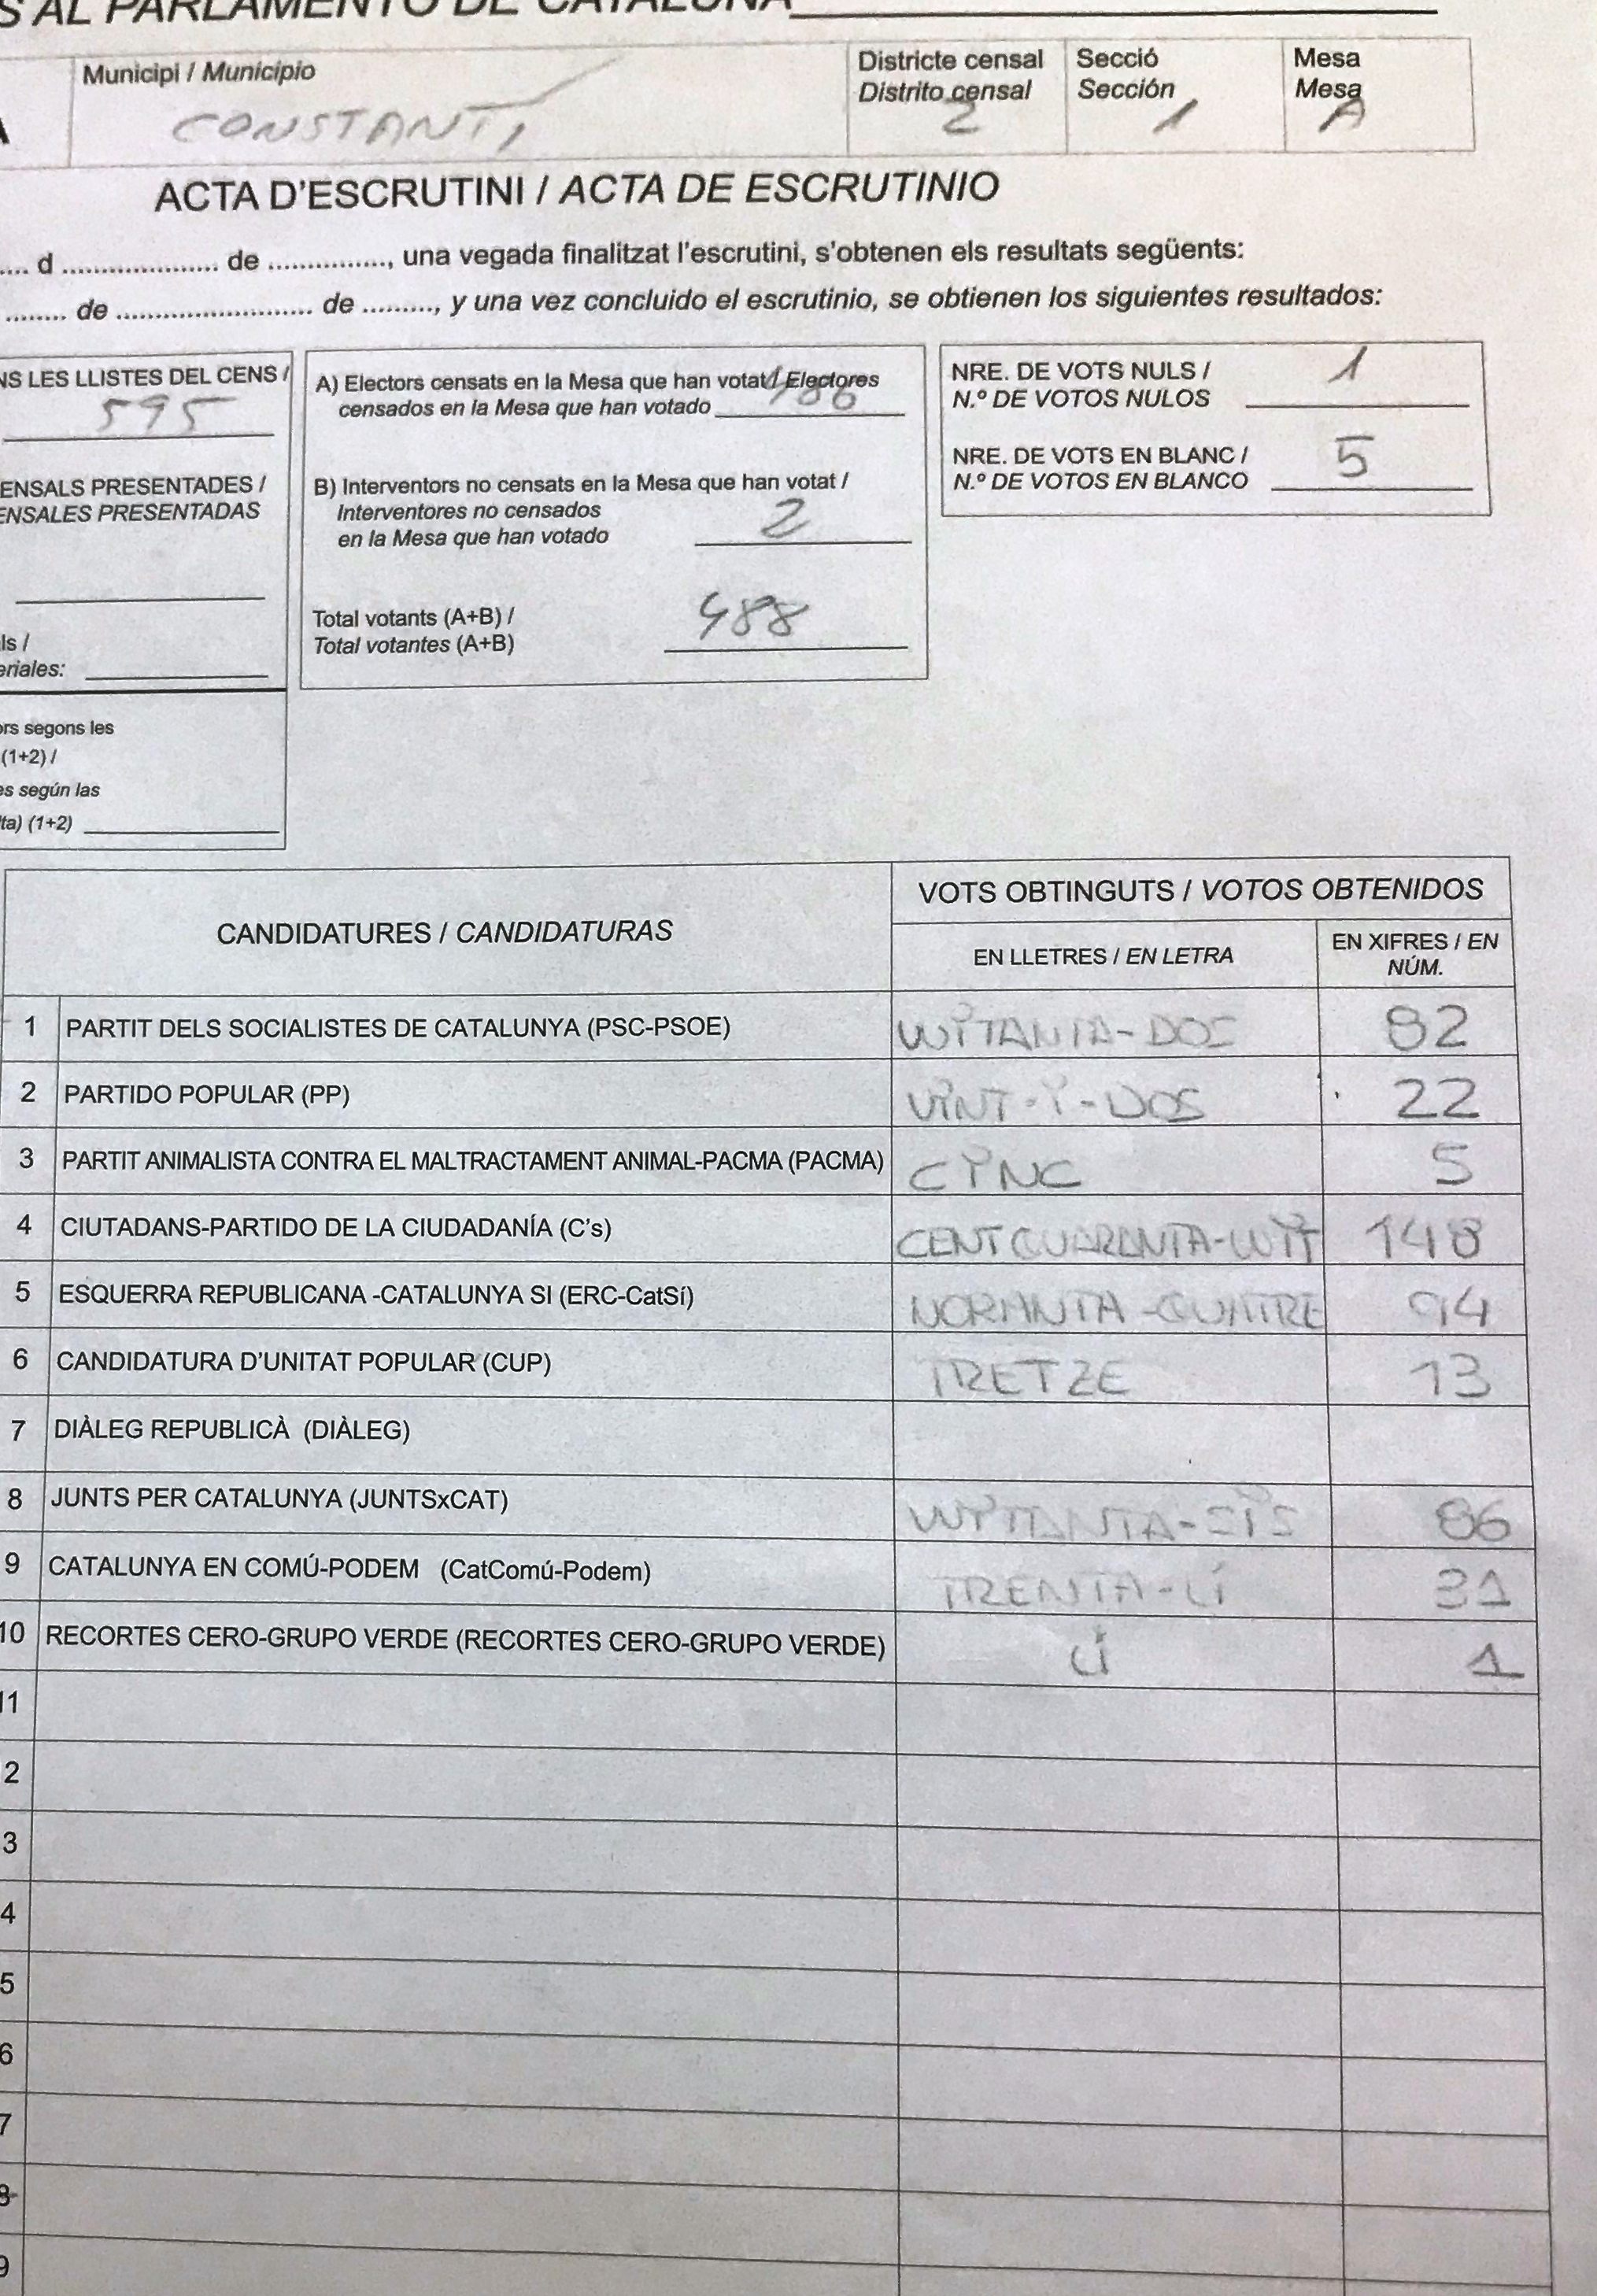 S AL PARLAMENTO DE CATALUÑA
Municipi / Municipio
CONSTANTI
Districte censal
Distrito censal
2
Secció
Sección
1
Mesa
Mesa
A
ACTA D'ESCRUTINI / ACTA DE ESCRUTINIO
.... d .................... de ..............., una vegada finalitzat l'escrutini, s'obtenen els resultats següents:
........ de ......................... de ........., y una vez concluido el escrutinio, se obtienen los siguientes resultados:
NS LES LLISTES DEL CENS /
595
ENSALS PRESENTADES /
ENSALES PRESENTADAS
ls /
eriales:
ors segons les
(1+2) /
es según las
lta) (1+2)
A) Electors censats en la Mesa que han votat / Electores
censados en la Mesa que han votado 486
B) Interventors no censats en la Mesa que han votat /
Interventores no censados
en la Mesa que han votado 2
Total votants (A+B) /
Total votantes (A+B) 488
NRE. DE VOTS NULS /
N.º DE VOTOS NULOS 1
NRE. DE VOTS EN BLANC /
N.º DE VOTOS EN BLANCO 5
CANDIDATURES / CANDIDATURAS
VOTS OBTINGUTS / VOTOS OBTENIDOS
EN LLETRES / EN LETRA
EN XIFRES / EN
NÚM.
1 PARTIT DELS SOCIALISTES DE CATALUNYA (PSC-PSOE) VUYTANTA-DOS 82
2 PARTIDO POPULAR (PP) VINT-Y-DOS 22
3 PARTIT ANIMALISTA CONTRA EL MALTRACTAMENT ANIMAL-PACMA (PACMA) CYNC 5
4 CIUTADANS-PARTIDO DE LA CIUDADANÍA (C's) CENT QUARANTA-VUYT 148
5 ESQUERRA REPUBLICANA -CATALUNYA SI (ERC-CatSí) NORANTA-QUATRE 94
6 CANDIDATURA D'UNITAT POPULAR (CUP) TRETZE 13
7 DIÀLEG REPUBLICÀ (DIÀLEG)
8 JUNTS PER CATALUNYA (JUNTSxCAT) VUYTANTA-SIS 86
9 CATALUNYA EN COMÚ-PODEM (CatComú-Podem) TRENTA-Ú 31
10 RECORTES CERO-GRUPO VERDE (RECORTES CERO-GRUPO VERDE) Ú 1
11
2
3
4
5
6
7
8
9